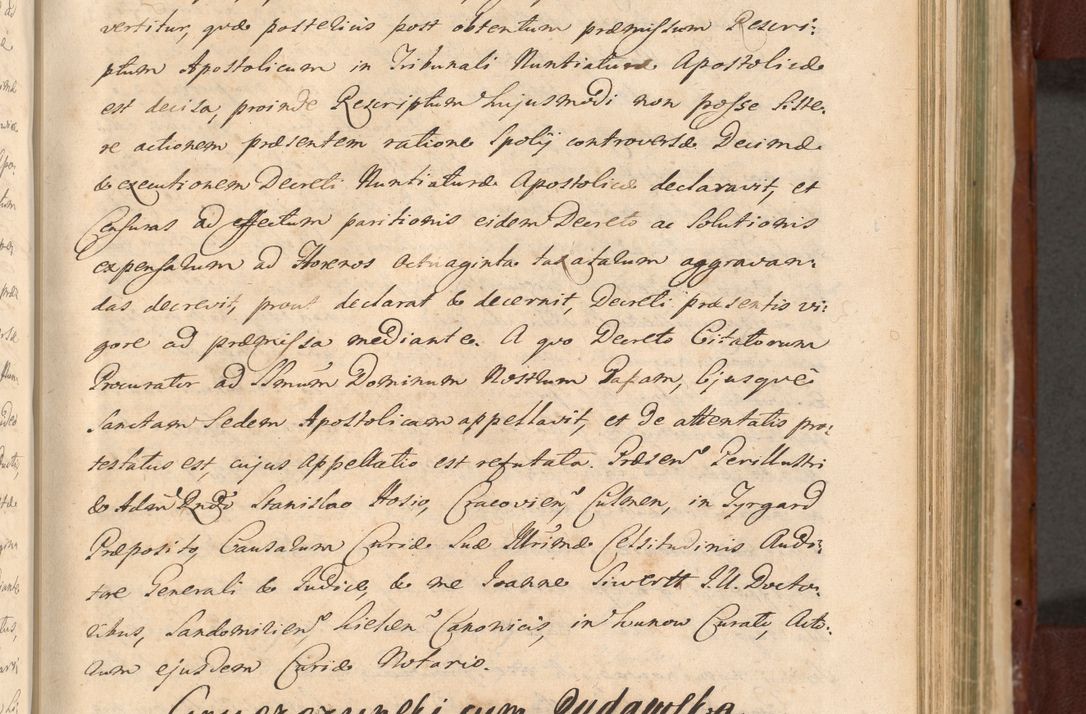 vertitur, quæ posterius post obtentum præmissum Rescri-
ptum Apostolicum in Tribunali Nuntiaturæ Apostolicæ
est decisa, proinde Rescriptum hujusmodi non posse siste-
re actionem præsentem ratione spolij controversæ Decimæ
& executionem Decreti Nuntiaturæ Apostolicæ declaravit, et
Censuras ad effectum paritionis eidem Decreto ac solutionis
expensarum ad Florenos octuaginta taxatarum aggravan-
das decrevit, prout declarat & decernit, Decreti præsentis vi-
gore ad præmissa mediante. A quo Decreto Citatorum
Procurator ad SSmum Dominum Nostrum Papam, Ejusque
Sanctam Sedem Apostolicam appellavit, et de attentatis pro-
testatus est, cujus Appellatio est refutata. Præsen. Perillustri
& Adm Rndo Stanislao Hosio, Cracovien. Culmen, in Tyrgard
Præposito, Causarum Curiæ Suæ Illrimæ Celsitudinis Audi-
tore Generali & Judice, & me Joanne Siwertt J.U. Docto-
ribus, Sandomirien. Kielcen. Canonicis, in Lunow Curato, Acto-
rum ejusdem Curiæ Notario.
cum